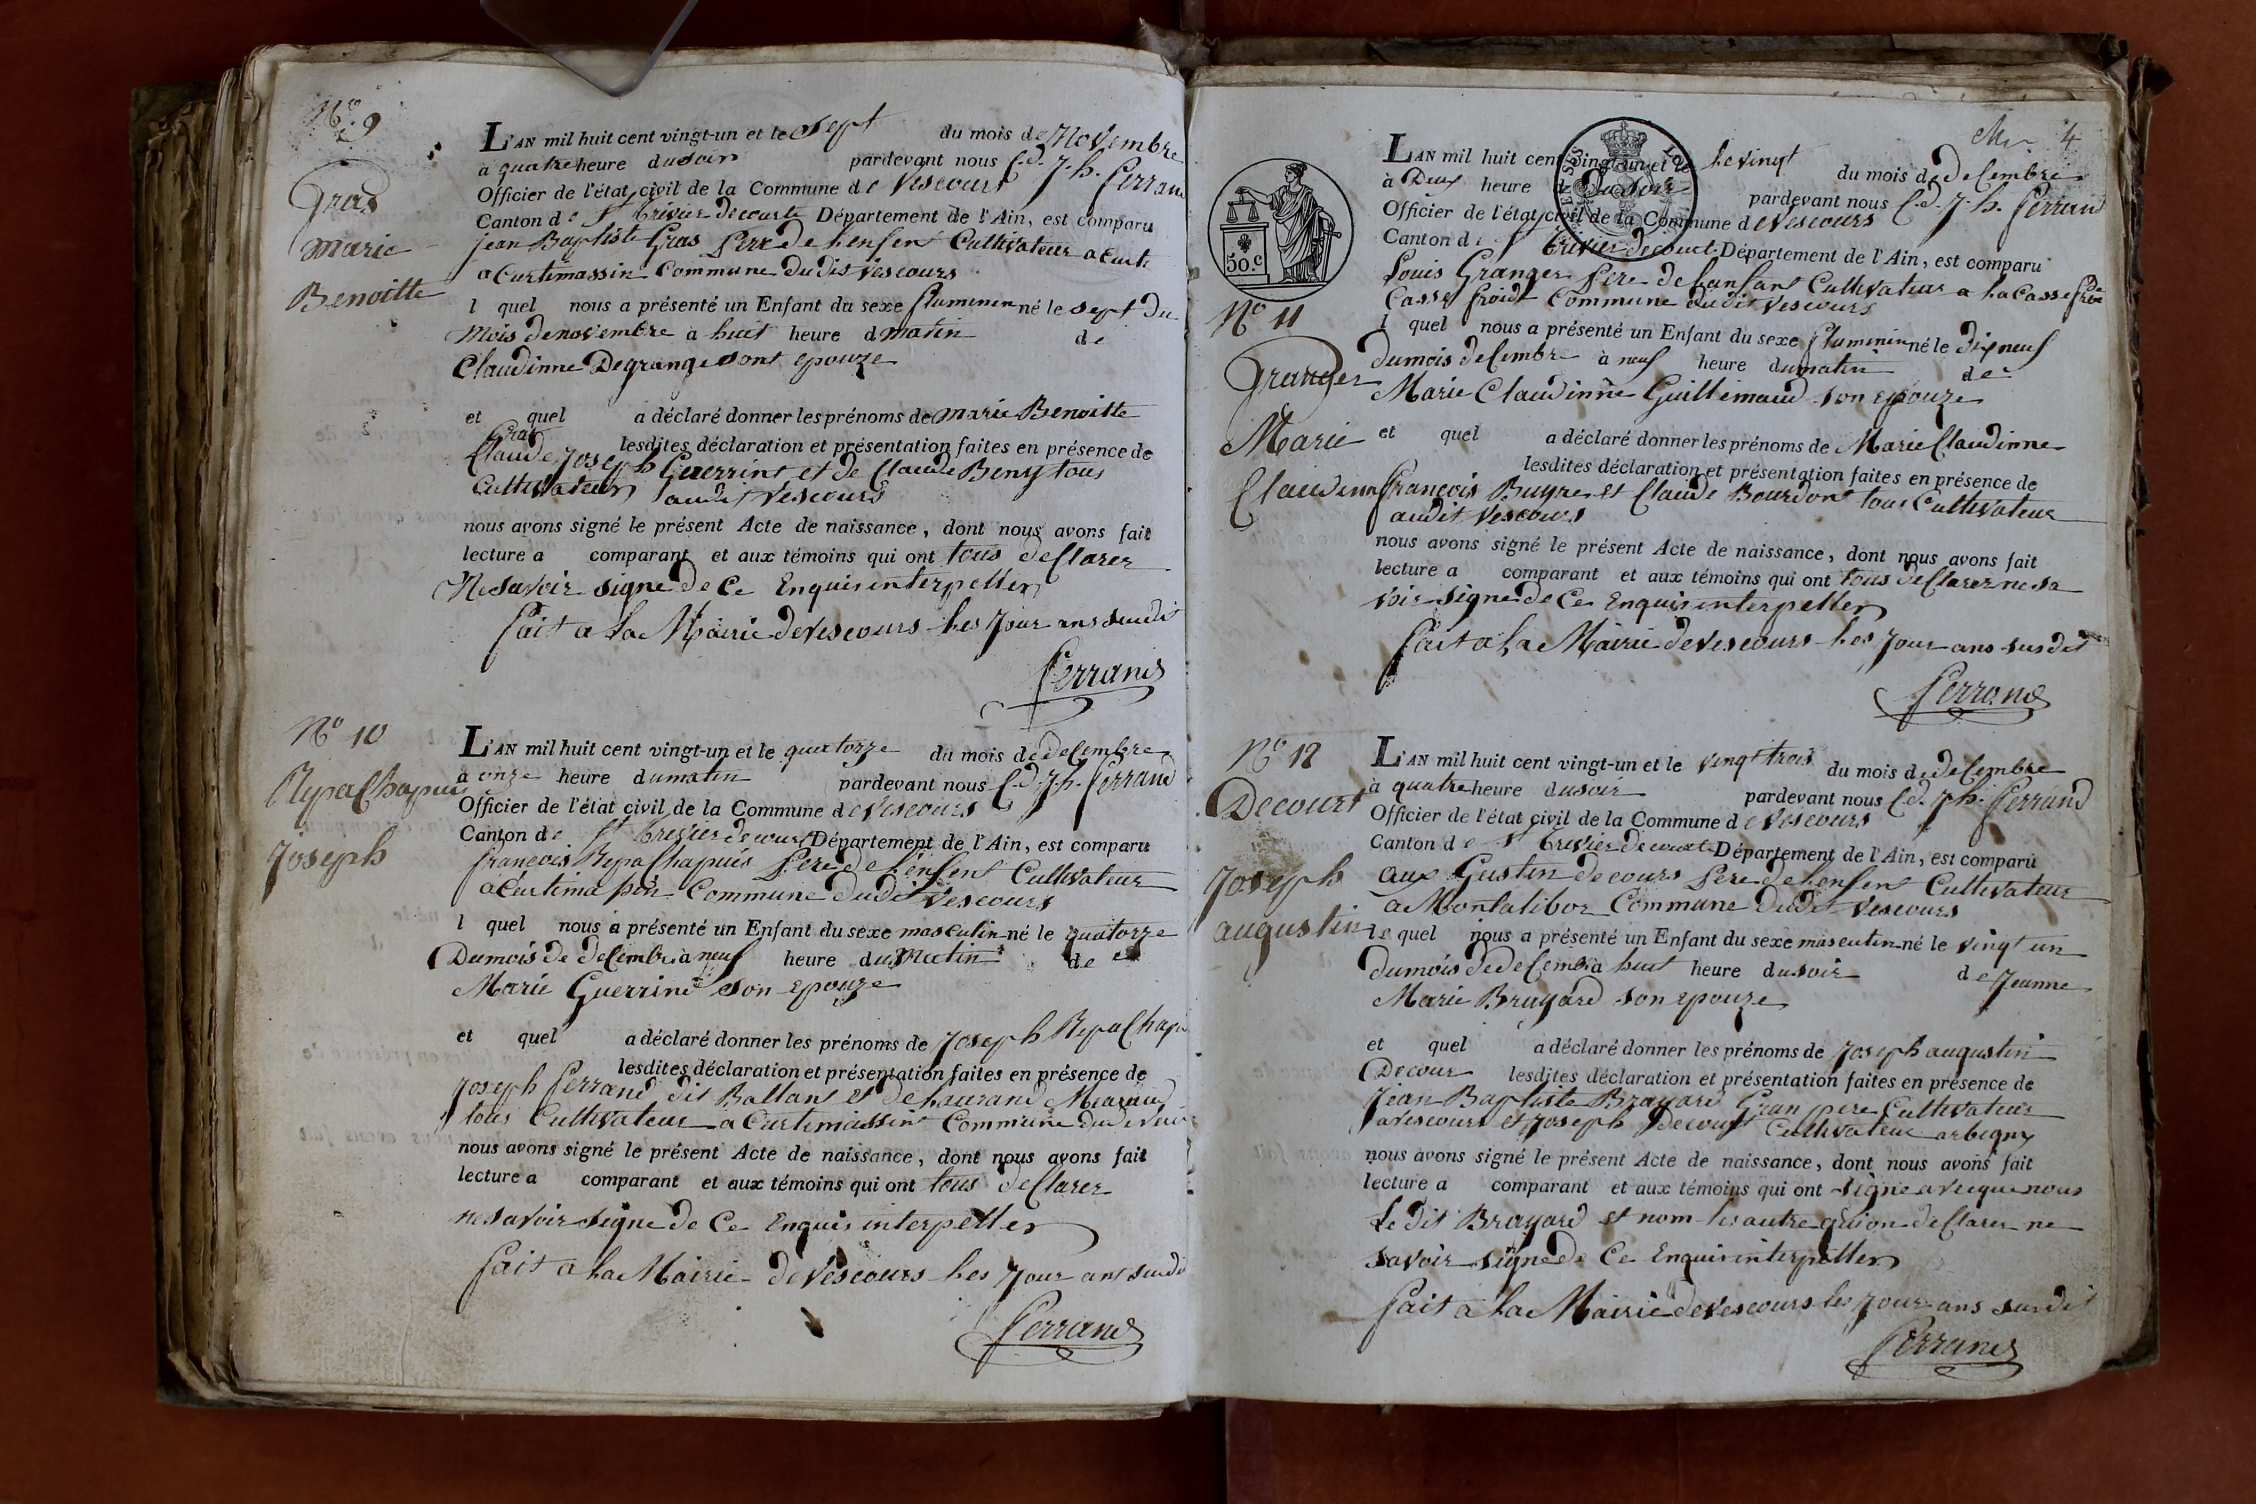 N° 9
Gras
marie
Benoitte
L'AN mil huit cent vingt-un et le sept du mois de Novembre
à quatre heure du soir pardevant nous C.d. J.h. ferrand
Officier de l'état civil de la Commune de Vescours
Canton de St trivier decourte Département de l'Ain, est comparu
jean Baptiste Gras pere de lenfent Cultivateur a Curti
a Curtimassin Commune dudit vescours
l quel nous a présenté un Enfant du sexe fluminin né le sept du
Mois de novembre à huit heure d matin de
Claudinne Degrange sont epouze
et quel a déclaré donner les prénoms de marie Benoitte
Gras lesdites déclaration et présentation faites en présence de
Claude joseph Guerrint et de Claude Beny tous
Cultivateurs audit vescours
nous avons signé le présent Acte de naissance, dont nous avons fait
lecture a comparant et aux témoins qui ont tous declarer
Ne savoir signe de Ce Enquis interpeller
fait a la Mairie de vescours les jour ans susdit
ferrand
N° 10
RepaChapuis
joseph
L'AN mil huit cent vingt-un et le quatorze du mois de decembre
à onze heure du matin pardevant nous C.d. J.h. ferrand
Officier de l'état civil de la Commune de vescours
Canton de St trivier decourt Département de l'Ain, est comparu
françois RepaChapuis pere de lenfent Cultivateur
a Curtima Commune dudit vescours
l quel nous a présenté un Enfant du sexe masculin né le quatorze
Dumois de decembre à neuf heure du matin de
Marie Guerrint son epouze
et quel a déclaré donner les prénoms de joseph RepaChapu
lesdites déclaration et présentation faites en présence de
joseph ferrand dit Ballant et de laurand
tous Cultivateur a Curtimassint Commune dudit
nous avons signé le présent Acte de naissance, dont nous avons fait
lecture a comparant et aux témoins qui ont tous declarer
ne savoir signe de Ce Enquis interpeller
fait a la Mairie de vescours les jour ans susdi
ferrand
4
50.c
N° 11
Granger
Marie
Claudinn
L'AN mil huit cent vingt-un et le le vingt du mois de decembre
à Deux heure du soir pardevant nous C.d. J.h. ferrand
Officier de l'état civil de la Commune de Vescours
Canton de St trivier decourt Département de l'Ain, est comparu
Louis Granger pere de lenfant Cultivateur a la Casse froide
Casse froide Commune dudit vescours
l quel nous a présenté un Enfant du sexe fluminin né le dix neuf
dumois decembre à neuf heure du matin de
Marie Claudinne Guillemaud son epouze
et quel a déclaré donner les prénoms de Marie Claudinne
lesdites déclaration et présentation faites en présence de
françois Buyre et Claude Bourdont tous Cultivateur
audit vescours
nous avons signé le présent Acte de naissance, dont nous avons fait
lecture a comparant et aux témoins qui ont tous declarer ne sa
voir signe de Ce Enquis interpeller
fait a la Mairie de vescours les jour ans susdit
ferrand
N° 12
Decourt
joseph
augustin
L'AN mil huit cent vingt-un et le vingt trois du mois de decembre
à quatre heure du soir pardevant nous C.d. J.h. ferrand
Officier de l'état civil de la Commune de vescours
Canton de St trivier decourt Département de l'Ain, est comparu
aux Gustin decours pere de lenfent Cultivateur
a Montalibor Commune dudit vescours
le quel nous a présenté un Enfant du sexe masculin né le vingt un
dumois de decembre à huit heure du soir de jeanne
Marie Brayard son epouze
et quel a déclaré donner les prénoms de joseph augustin
Decour lesdites déclaration et présentation faites en présence de
jean Baptiste Brayard Gran pere Cultivateur
a vescours et joseph decourt Cultivateur arbigny
nous avons signé le présent Acte de naissance, dont nous avons fait
lecture a comparant et aux témoins qui ont signe avecque nous
Le dit Brayard et nom les autre qui on declarer ne
savoir signe de Ce Enquis interpeller
fait a la Mairie de vescours les jour ans susdit
ferrand